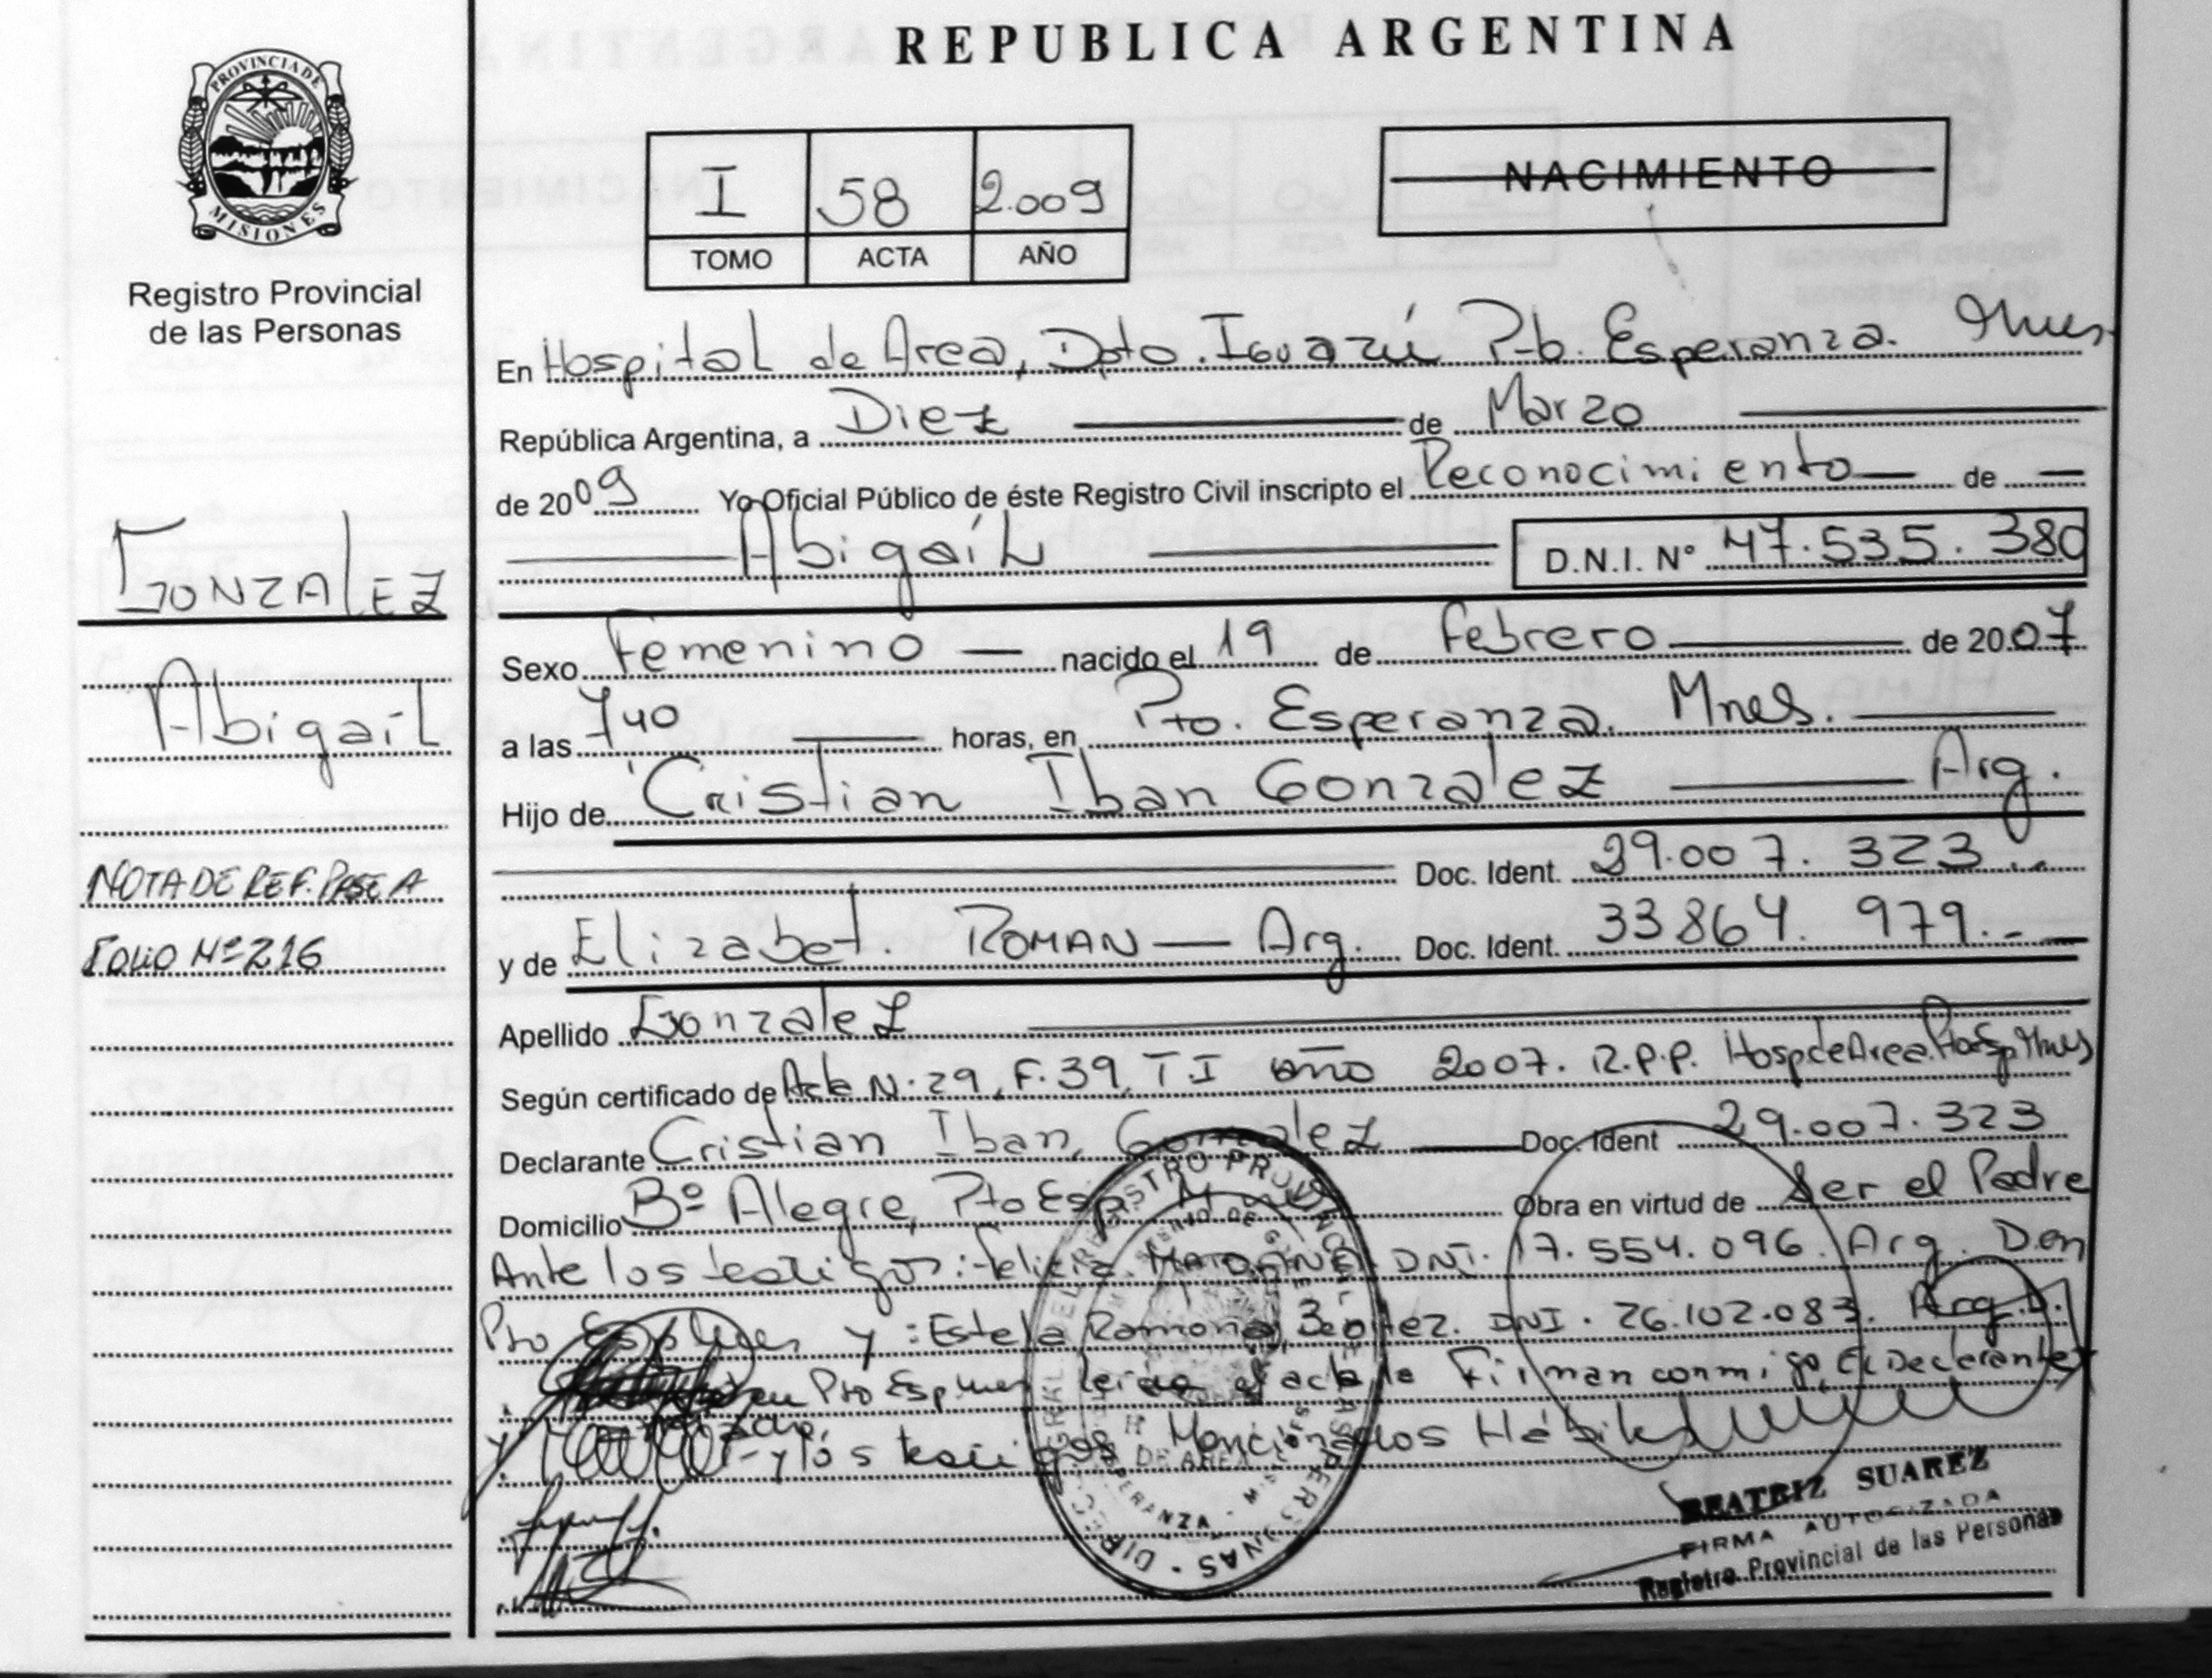 REPUBLICA ARGENTINA
PROVINCIA DE
MISIONES
Registro Provincial
de las Personas
I 58 2.009
TOMO ACTA AÑO
NACIMIENTO
En Hospital de Area, Dpto. Iguazú Pto. Esperanza. Mnes
República Argentina, a Diez de Marzo
de 2009 Yo Oficial Público de éste Registro Civil inscripto el Reconocimiento de
Abigaíl D.N.I. N° 47.535.380
GONZALEZ
Abigaíl
NOTA DE REF. PASE A
FOLIO Nº 216
Sexo Femenino nacido el 19 de Febrero de 2007
a las 740 horas, en Pto. Esperanza. Mnes.
Hijo de Cristian Iban Gonzalez Arg.
Doc. Ident. 29.007.323
y de Elizabet. ROMAN Arg. Doc. Ident. 33864.979.-
Apellido Gonzalez
Según certificado de Acta N. 29, F. 39, T. I año 2007. R.P.P. Hosp de Area Pto Esp Mnes
Declarante Cristian Iban, Gonzalez Doc. Ident 29.007.323
Domicilio Bº Alegre, Pto Esp. Mnes Obra en virtud de Ser el Padre
Ante los testigos: Felicia DNI. 17.554.096. Arg. Dom
Pto Esp Mnes y: Estela Ramona Benitez. DNI. 26.102.083. Arg. D.
en Pto Esp Mnes leida el acta la Firman conmigo, El Declarante
y los testigos Mencionados Hábiles
BEATRIZ SUAREZ
FIRMA AUTORIZADA
Registro Provincial de las Personas